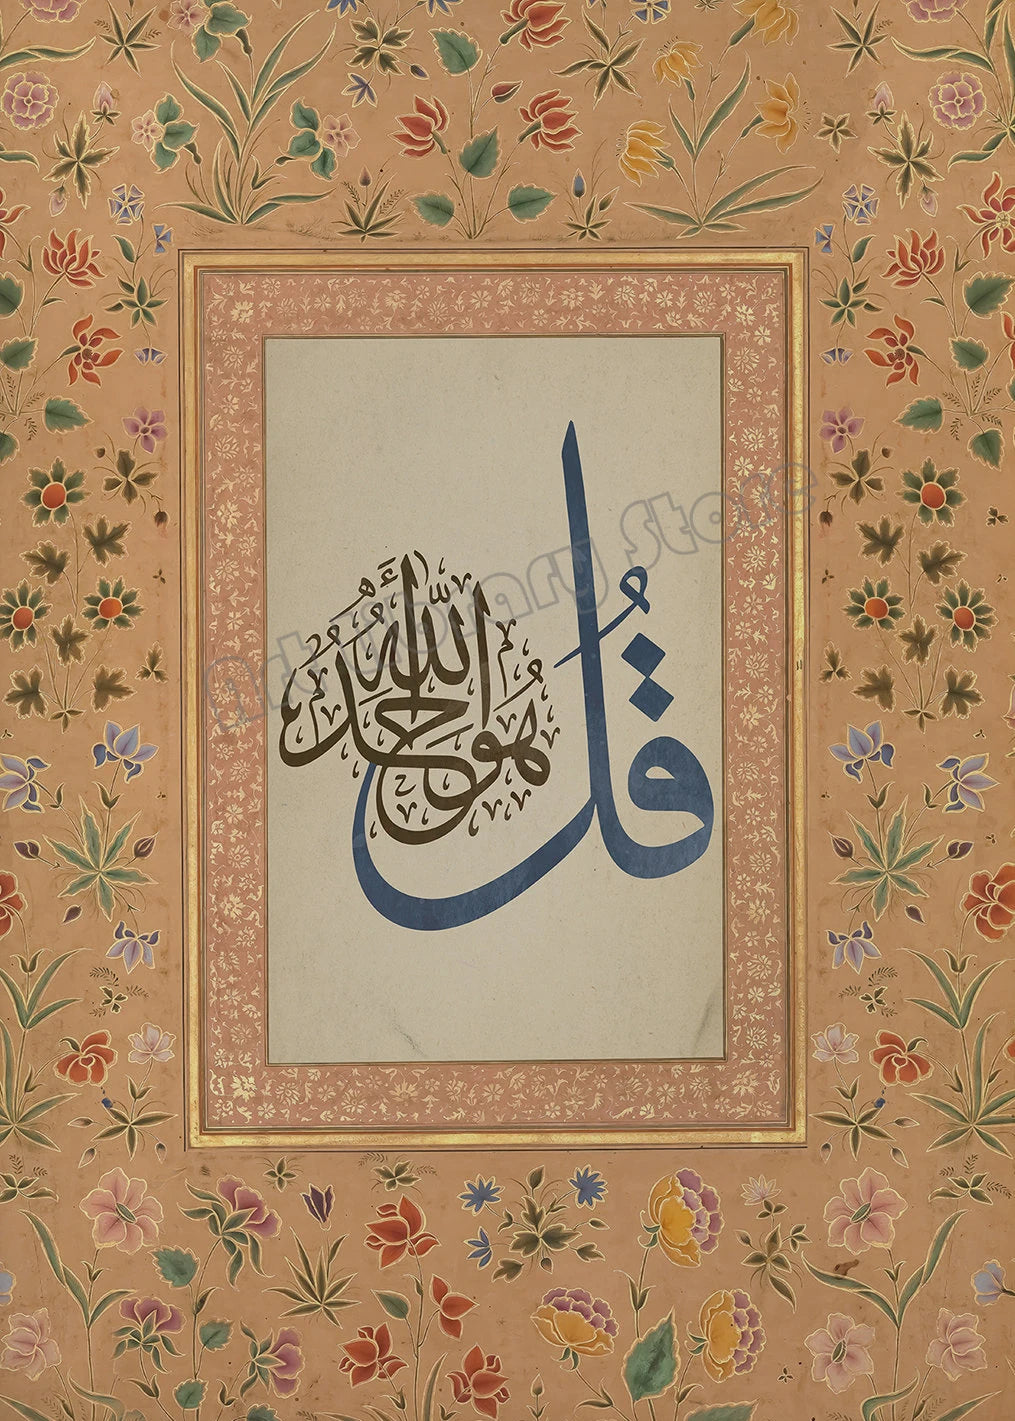 قُلْ هُوَ اللَّهُ أَحَدٌ
Art Library Store